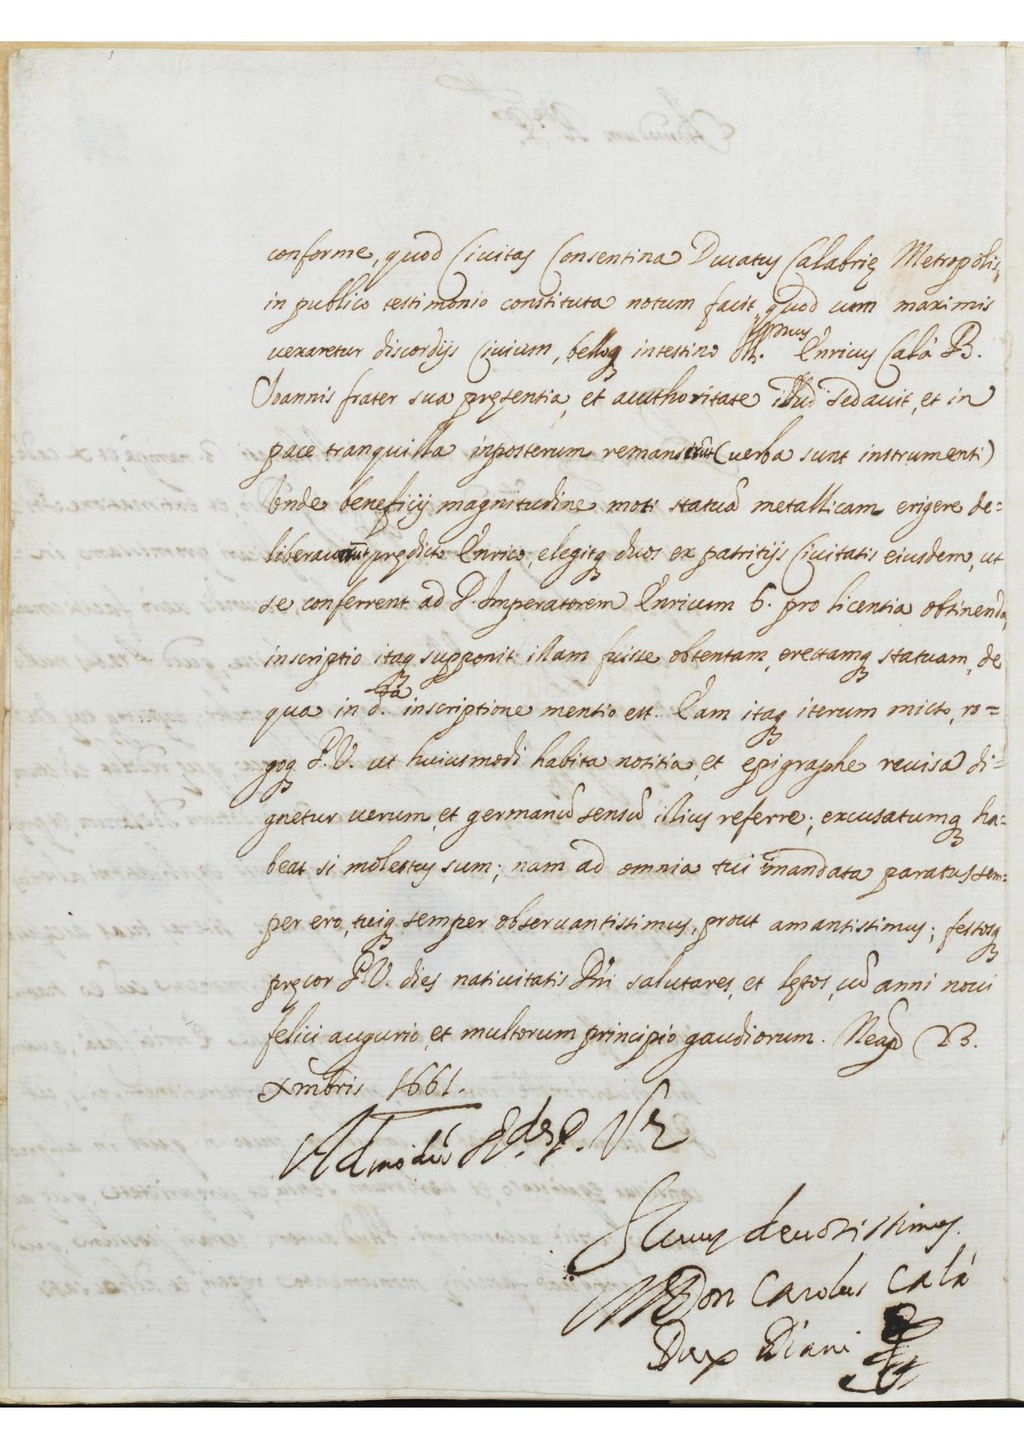 conforme, quod Ciuitas Consentina Ducatus Calabrię Metropolis,
in publico testimonio constituta notum facit, quod cum maximis
uexaretur discordijs Ciuium, belloq intestino Enricus Calà B.
Ioannis frater sua pręsentia, et authoritate illud sedauit, et in
pace tranquilla inposterum (uerba sunt instrumenti)
Unde beneficij magnitudine moti statuã metallicam erigere de=
prędicto Enrico, elegitq duos ex patritijs Ciuitatis eiusdem, ut
se conferrent ad D. Imperatorem Enricum 6. pro licentia obtinenda,
inscriptio itaq supponit illam fuisse obtentam, erectamq statuam, de
qua in d.ta inscriptione mentio est. Eam itaq iterum micto, ro=
goq P.V. ut huiusmodi habita notitia, et epigraphe reuisa di=
gnetur uerum, et germanũ sensũ illius referre; excusatumq ha=
beat si molestus sum; nam ad omnia tui mandata paratus sem=
per ero, tuiq semper obseruantissimus, prout amantissimus; festosq
pręcor P.V. dies natiuitatis Dñi salutares, et lętos, cũ anni noui
felici augurio, et multorum principio gaudiorum. Neap 23.
Xmbris 1661.
Admodũ R.dę P. Vę
Seruus deuotissimus
Don Carolus Calà
Dux Diani